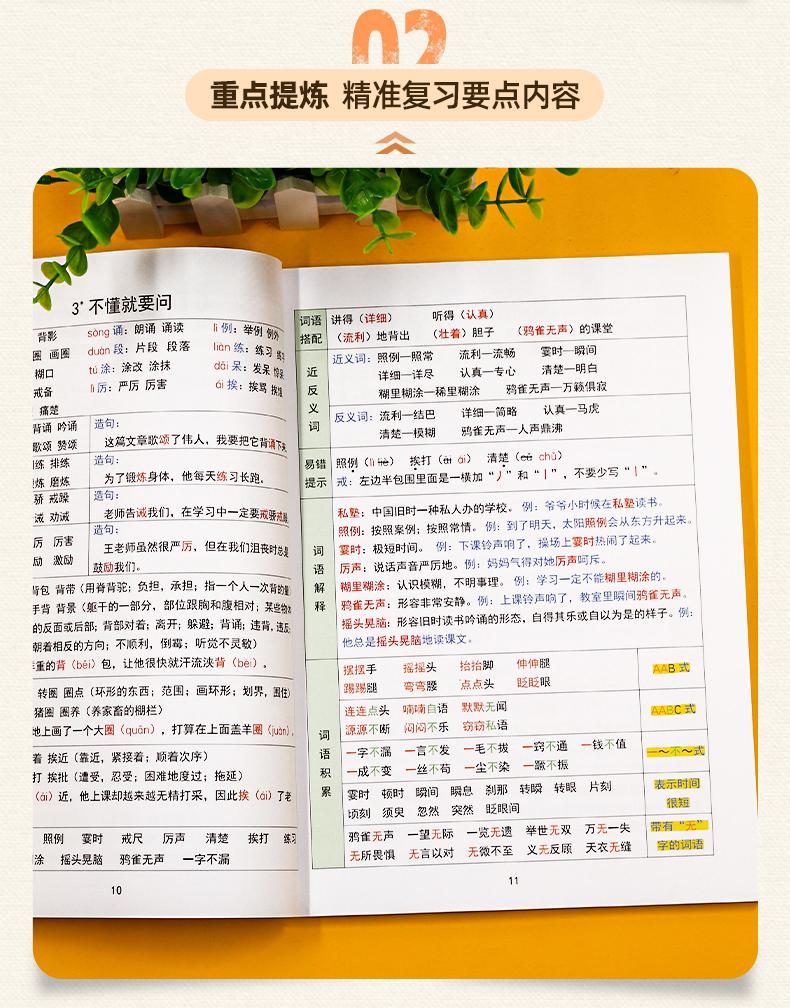 02
重点提炼 精准复习要点内容
3* 不懂就要问
背影 sòng 诵：朗诵 诵读 lì 例：举例 例外
圈 画圈 duàn 段：片段 段落 liàn 练：练习
糊口 tú 涂：涂改 涂抹 dāi 呆：发呆
戒备 lì 厉：严厉 厉害 ái 挨：挨骂
痛楚
背诵 吟诵 造句：
歌颂 赞颂 这篇文章歌颂了伟人，我要把它背诵下来
练 排练 造句：
炼 磨炼 为了锻炼身体，他每天练习长跑。
骄 戒躁 造句：
诫 劝诫 老师告诫我们，在学习中一定要戒骄戒
厉 厉害 造句：
励 激励 王老师虽然很严厉，但在我们沮丧时总是
鼓励我们。
背包 背带（用脊背驼；负担，承担；指一个人一次背的量
手背 背景（躯干的一部分，部位跟胸和腹相对；某些物
的反面或后部；背部对着；离开；躲避；背诵；违背，违反
朝着相反的方向；不顺利，倒霉；听觉不灵敏）
重的背（bēi）包，让他很快就汗流浃背（bèi）。
转圈 圈点（环形的东西；范围；画环形；划界，围住）
猪圈 圈养（养家畜的棚栏）
地上画了一个大圈（quān），打算在上面盖羊圈（juàn）
着 挨近（靠近，紧接着；顺着次序）
打 挨批（遭受，忍受；困难地度过；拖延）
（āi）近，他上课却越来越无精打采，因此挨（ái）了老
照例 霎时 戒尺 厉声 清楚 挨打 练
涂 摇头晃脑 鸦雀无声 一字不漏
10
词语搭配
讲得（详细） 听得（认真）
（流利）地背出 （壮着）胆子 （鸦雀无声）的课堂
近反义词
近义词：照例—照常 流利—流畅 霎时—瞬间
详细—详尽 认真—专心 清楚—明白
糊里糊涂—稀里糊涂 鸦雀无声—万籁俱寂
反义词：流利—结巴 详细—简略 认真—马虎
清楚—模糊 鸦雀无声—人声鼎沸
易错提示
照例（lì liè） 挨打（āi ái） 清楚（cǔ chǔ）
戒：左边半包围里面是一横加“丿”和“丨”，不要少写“丨”。
词语解释
私塾：中国旧时一种私人办的学校。例：爷爷小时候在私塾读书。
照例：按照案例；按照常情。例：到了明天，太阳照例会从东方升起来。
霎时：极短时间。例：下课铃声响了，操场上霎时热闹了起来。
厉声：说话声音严厉地。例：妈妈气得对她厉声呵斥。
糊里糊涂：认识模糊，不明事理。例：学习一定不能糊里糊涂的。
鸦雀无声：形容非常安静。例：上课铃声响了，教室里瞬间鸦雀无声。
摇头晃脑：形容旧时读书吟诵的形态，自得其乐或自以为是的样子。例：
他总是摇头晃脑地读课文。
词语积累
摆摆手 摇摇头 抬抬脚 伸伸腿
踢踢腿 弯弯腰 点点头 眨眨眼
AAB 式
连连点头 喃喃自语 默默无闻
源源不断 闷闷不乐 窃窃私语
AABC 式
一字不漏 一言不发 一毛不拔 一窍不通 一钱不值
一成不变 一丝不苟 一尘不染 一蹶不振
一～不～式
霎时 顿时 瞬间 瞬息 刹那 转瞬 转眼 片刻
顷刻 须臾 忽然 突然 眨眼间
表示时间很短
鸦雀无声 一望无际 一览无遗 举世无双 万无一失
无所畏惧 无言以对 无微不至 义无反顾 天衣无缝
带有“无”字的词语
11